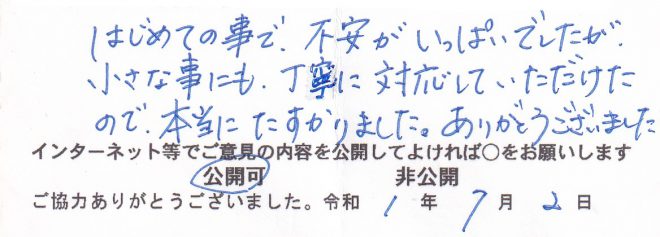 はじめての事で、不安がいっぱいでしたが、
小さな事にも、丁寧に対応していただけた
ので、本当にたすかりました。ありがとうございました
インターネット等でご意見の内容を公開してよければ○をお願いします
公開可 非公開
ご協力ありがとうございました。令和 1 年 7 月 2 日